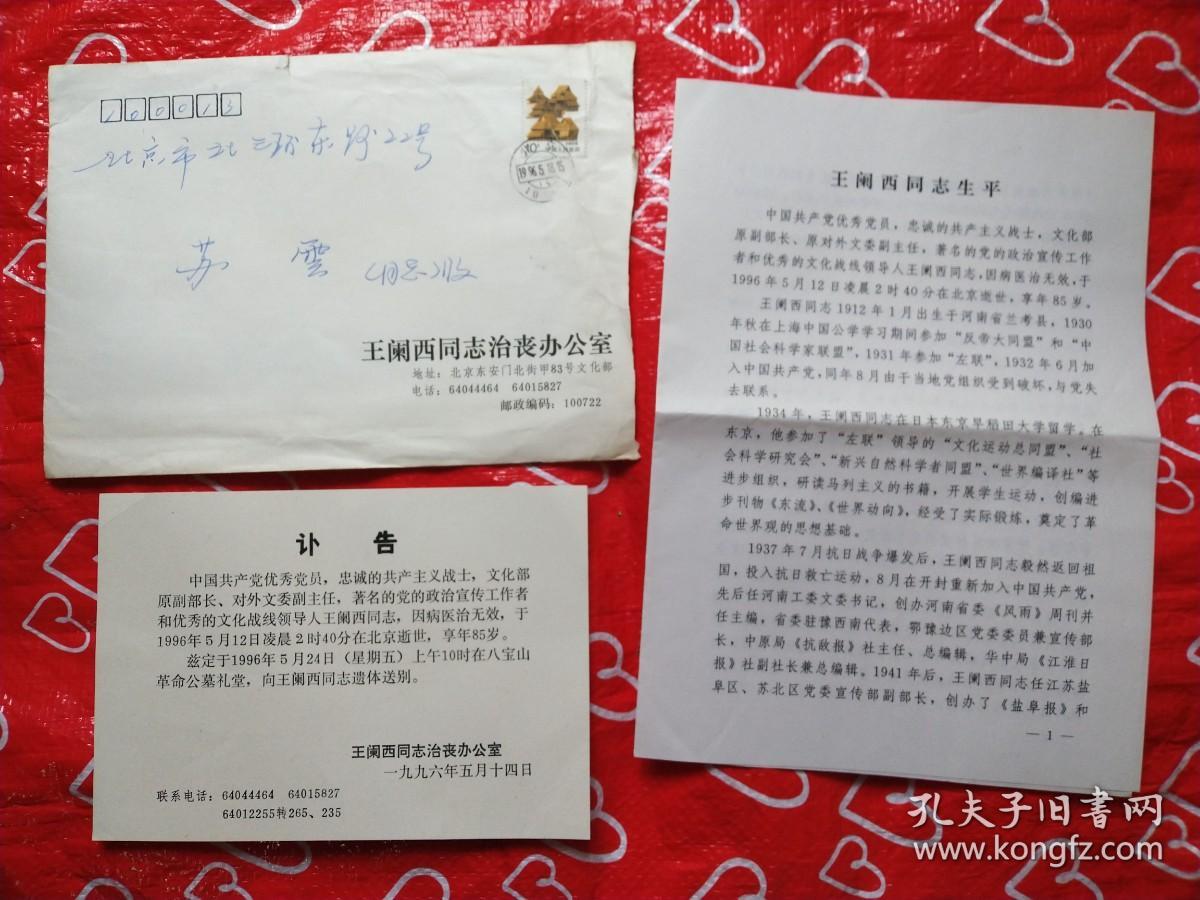 100013
北京市北三环东路22号
苏雲 同志收
1996.5.18.15
王阑西同志治丧办公室
地址：北京东安门北街甲83号文化部
电话：64044464 64015827
邮政编码：100722
讣告
中国共产党优秀党员，忠诚的共产主义战士，文化部
原副部长、对外文委副主任，著名的党的政治宣传工作者
和优秀的文化战线领导人王阑西同志，因病医治无效，于
1996年5月12日凌晨2时40分在北京逝世，享年85岁。
兹定于1996年5月24日（星期五）上午10时在八宝山
革命公墓礼堂，向王阑西同志遗体送别。
王阑西同志治丧办公室
一九九六年五月十四日
联系电话：64044464 64015827
64012255转265、235
王阑西同志生平
中国共产党优秀党员，忠诚的共产主义战士，文化部
原副部长、原对外文委副主任，著名的党的政治宣传工作
者和优秀的文化战线领导人王阑西同志，因病医治无效，于
1996年5月12日凌晨2时40分在北京逝世，享年85岁。
王阑西同志1912年1月出生于河南省兰考县，1930
年秋在上海中国公学学习期间参加“反帝大同盟”和“中
国社会科学家联盟”，1931年参加“左联”，1932年6月加
入中国共产党，同年8月由于当地党组织受到破坏，与党失
去联系。
1934年，王阑西同志在日本东京早稻田大学留学。在
东京，他参加了“左联”领导的“文化运动总同盟”、“社
会科学研究会”、“新兴自然科学者同盟”、“世界编译社”等
进步组织，研读马列主义的书籍，开展学生运动，创编进
步刊物《东流》、《世界动向》，经受了实际锻炼，奠定了革
命世界观的思想基础。
1937年7月抗日战争爆发后，王阑西同志毅然返回祖
国，投入抗日救亡运动，8月在开封重新加入中国共产党，
先后任河南工委文委书记，创办河南省委《风雨》周刊并
任主编，省委驻豫西南代表，鄂豫边区党委委员兼宣传部
长，中原局《抗敌报》社主任、总编辑，华中局《江淮日
报》社副社长兼总编辑。1941年后，王阑西同志任江苏盐
阜区、苏北区党委宣传部副部长，创办了《盐阜报》和
— 1 —
孔夫子旧书网
www.kongfz.com